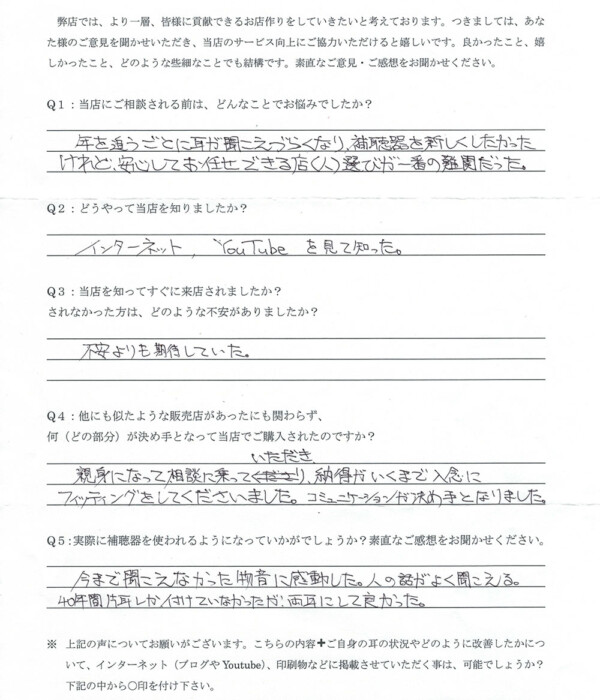 弊店では、より一層、皆様に貢献できるお店作りをしていきたいと考えております。つきましては、あな
た様のご意見を聞かせいただき、当店のサービス向上にご協力いただけると嬉しいです。良かったこと、嬉
しかったこと、どのような些細なことでも結構です。素直なご意見・ご感想をお聞かせください。
Q1：当店にご相談される前は、どんなことでお悩みでしたか？
年を追うごとに耳が聞こえづらくなり、補聴器を新しくしたかった
けれど、安心してお任せできる店(人)選びが一番の難関だった。
Q2：どうやって当店を知りましたか？
インターネット、YouTube を見て知った。
Q3：当店を知ってすぐに来店されましたか？
されなかった方は、どのような不安がありましたか？
不安よりも期待していた。
Q4：他にも似たような販売店があったにも関わらず、
何（どの部分）が決め手となって当店でご購入されたのですか？
いただき
親身になって相談に乗ってくださり、納得がいくまで入念に
フィッティングをしてくださいました。コミュニケーションが決め手となりました。
Q5：実際に補聴器を使われるようになっていかがでしょうか？素直なご感想をお聞かせください。
今まで聞こえなかった物音に感動した。人の話がよく聞こえる。
40年間片耳しか付けていなかったが、両耳にして良かった。
※ 上記の声についてお願いがございます。こちらの内容＋ご自身の耳の状況やどのように改善したかにつ
いて、インターネット（ブログや Youtube）、印刷物などに掲載させていただく事は、可能でしょうか？
下記の中から〇印を付け下さい。